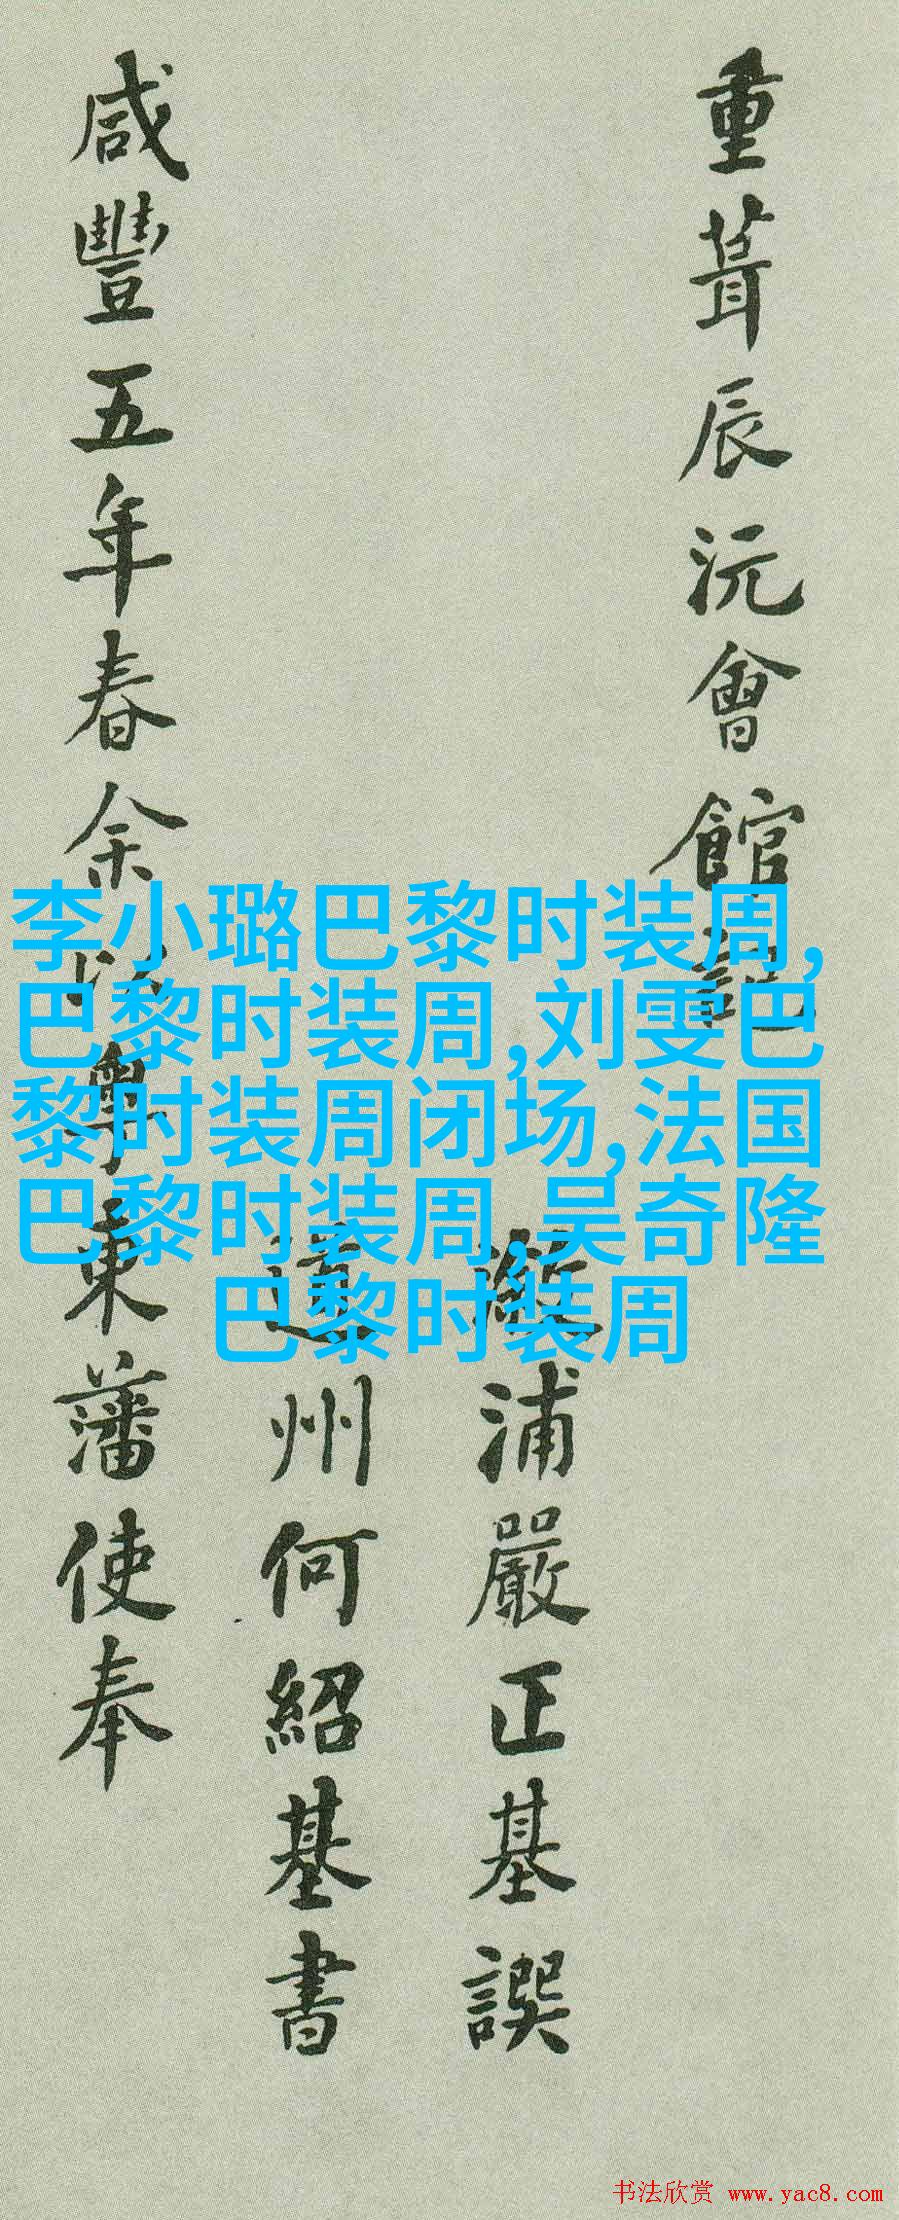 重葺辰沅會館記
漵浦嚴正基譔
道州何紹基書
咸豐五年春余以粵東藩使奉
李小璐巴黎时装周,
巴黎时装周,刘雯巴
黎时装周闭场,法国
巴黎时装周,吴奇隆
巴黎时装周
书法欣赏 www.yac8.com